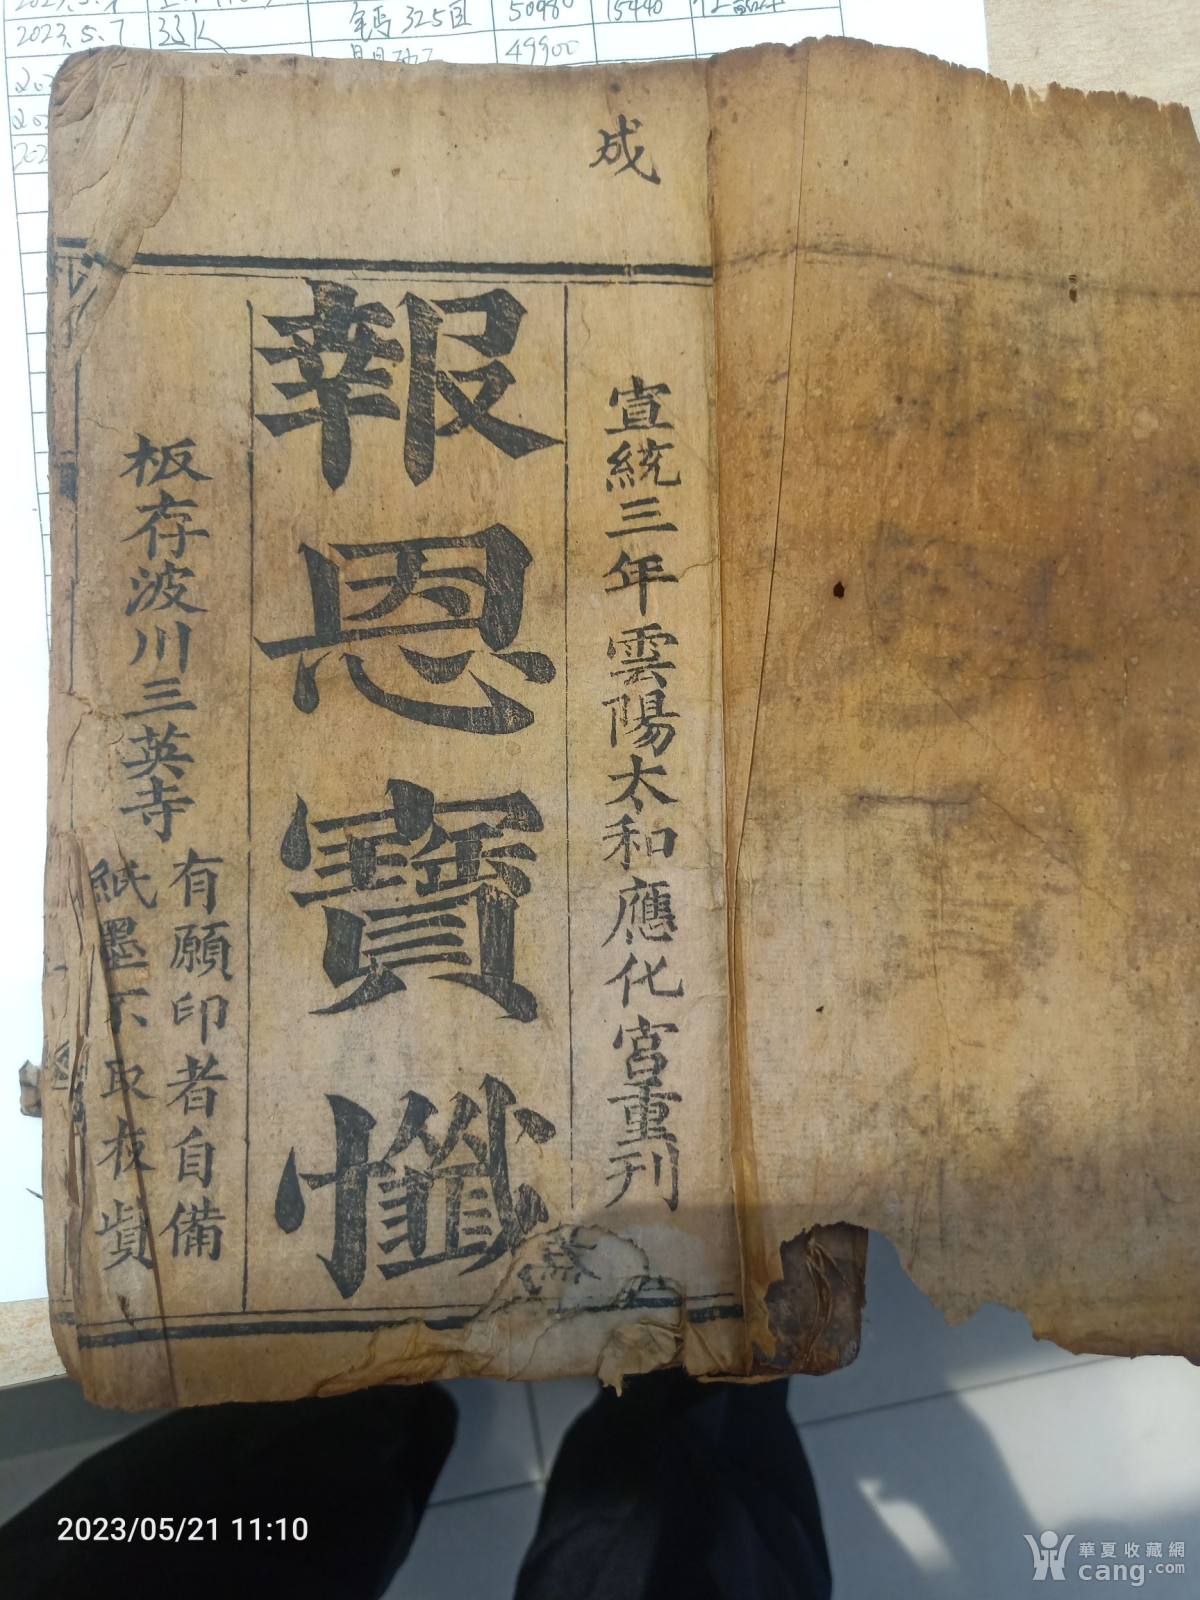 2023.5.7
325
50980
15440
49900
成
宣統三年雲陽太和應化宮重刊
報恩寶懺
板存波川三英寺
有願印者自備
紙墨不取板貲
2023/05/21 11:10
華夏收藏網
cang.com